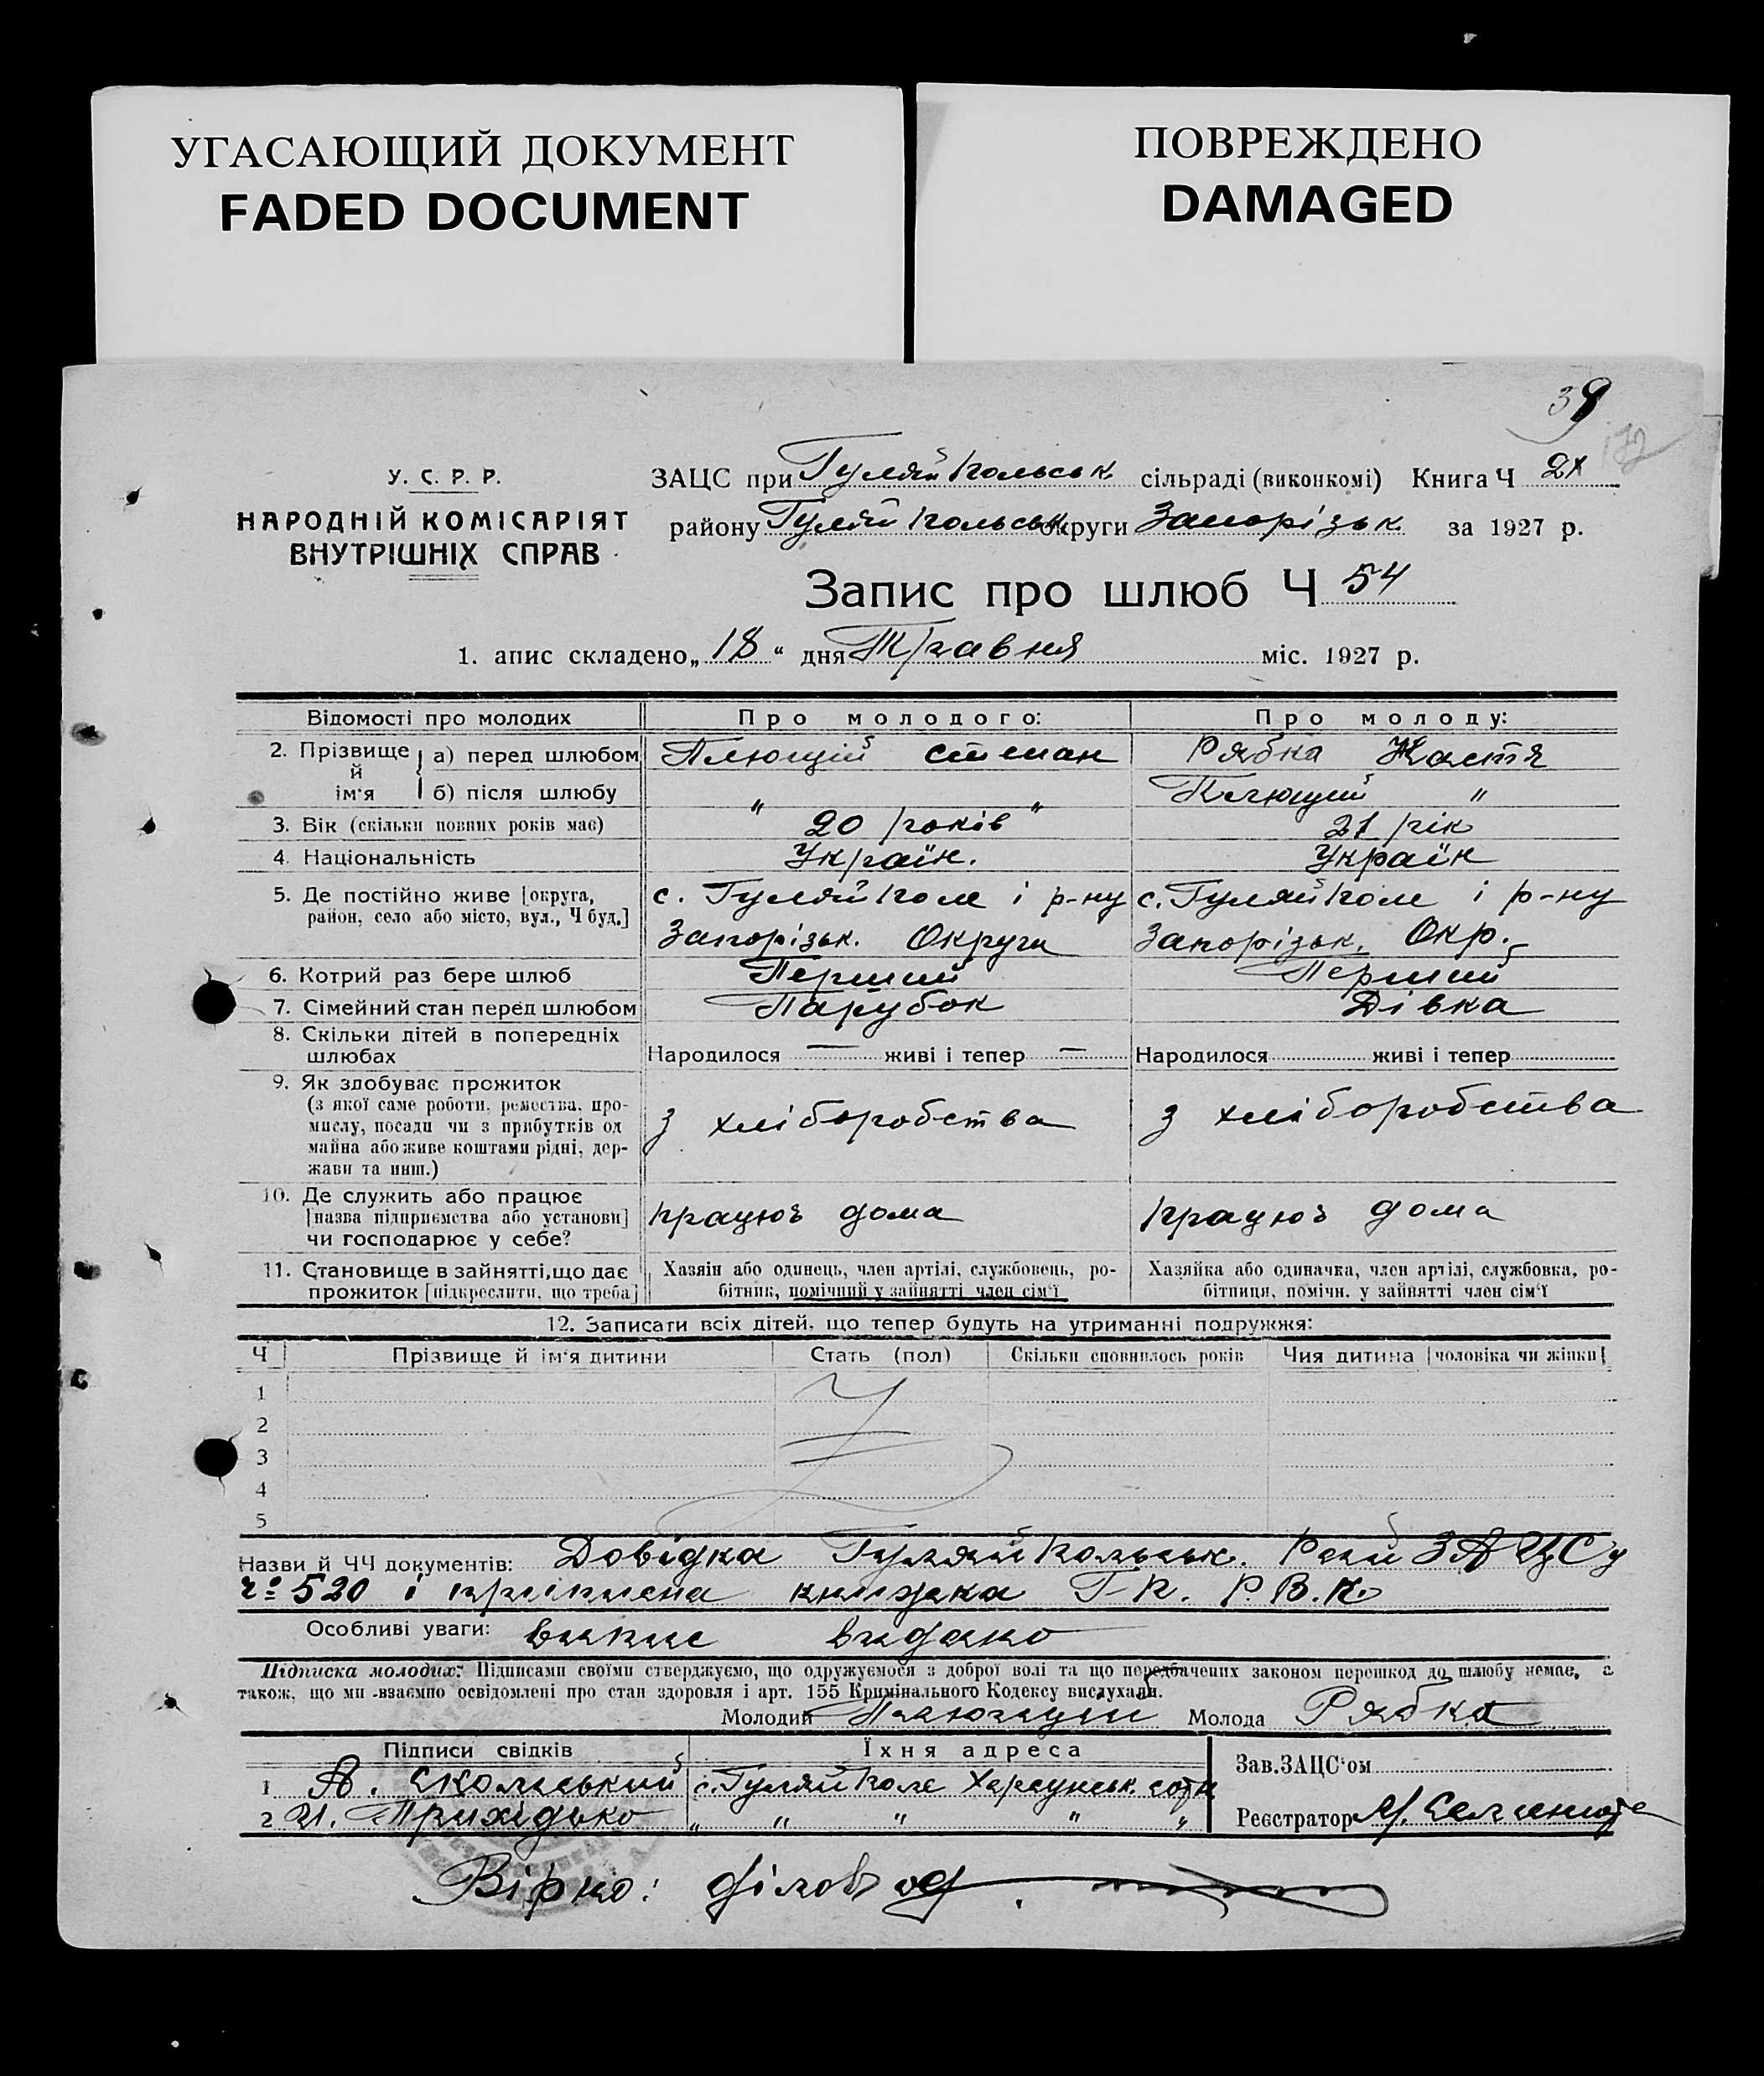 УГАСАЮЩИЙ ДОКУМЕНТ
FADED DOCUMENT
ПОВРЕЖДЕНО
DAMAGED
39
172
У. С. Р. Р.
НАРОДНІЙ КОМІСАРІЯТ
ВНУТРІШНІХ СПРАВ
ЗАЦС при Гуляйпольськ. сільраді (виконкомі) Книга Ч
району Гуляйпольськ. округи Запорізьк. за 1927 р.
Запис про шлюб Ч 54
1. апис складено „18“ дня Травня міс. 1927 р.
Відомості про молодих Про молодого: Про молоду:
2. Прізвище й ім'я а) перед шлюбом Плющій Степан Рябка Настя
б) після шлюбу " " Плющий "
3. Вік (скільки повних років має) 20 років 21 рік
4. Національність Україн. Україн
5. Де постійно живе [округа, район, село або місто, вул., Ч буд.] с. Гуляйполе і р-ну с. Гуляйполе і р-ну
Запорізьк. Округи Запорізьк. Окр.
6. Котрий раз бере шлюб Перший Перший
7. Сімейний стан перед шлюбом Парубок Дівка
8. Скільки дітей в попередніх шлюбах Народилося — живі і тепер — Народилося живі і тепер
9. Як здобуває прожиток
(з якої саме роботи, ремества, промислу, посади чи з прибутків од майна або живе коштами рідні, держави та инш.) З хліборобства З хліборобства
10. Де служить або працює
[назва підприємства або установи]
чи господарює у себе? працює дома працює дома
11. Становище в зайнятті, що дає Хазяїн або одинець, член артілі, службовець, ро- Хазяйка або одиначка, член артілі, службовка, ро-
прожиток [підкреслити, що треба] бітник, помічний у зайнятті член сім'ї бітниця, помічн. у зайнятті член сім'ї
12. Записати всіх дітей, що тепер будуть на утриманні подружжя:
Ч Прізвище й ім'я дитини Стать (пол) Скільки сповнилось років Чия дитина [чоловіка чи жінки]
1
2
3
4
5
Назви й ЧЧ документів: Довідка Гуляйпольськ. Рай ЗАЦСу
№ 520 і приписна книжка Г-П. Р.В.К.
Особливі уваги: випис видано
Підписка молодих: Підписами своїми стверджуємо, що одружуємося з доброї волі та що передбачених законом перешкод до шлюбу немає, а
також, що ми взаємно освідомлені про стан здоровля і арт. 155 Кримінального Кодексу вислухали.
Молодий Плющий Молода Рябка
Підписи свідків Їхня адреса Зав. ЗАЦС'ом
1 с. Гуляйполе Херсунськ. сотн
2 И. Прихідько " " " " " Реєстратор
Вірно: діловод